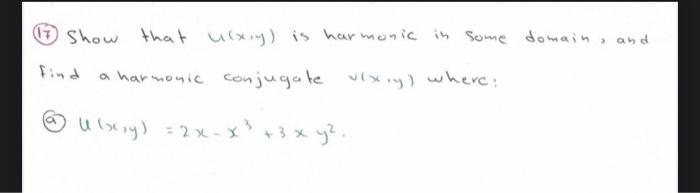 (17) Show that u(x,y) is harmonic in some domain, and
find a harmonic conjugate v(x,y) where:
(a) u(x,y) = 2x - x³ + 3xy².